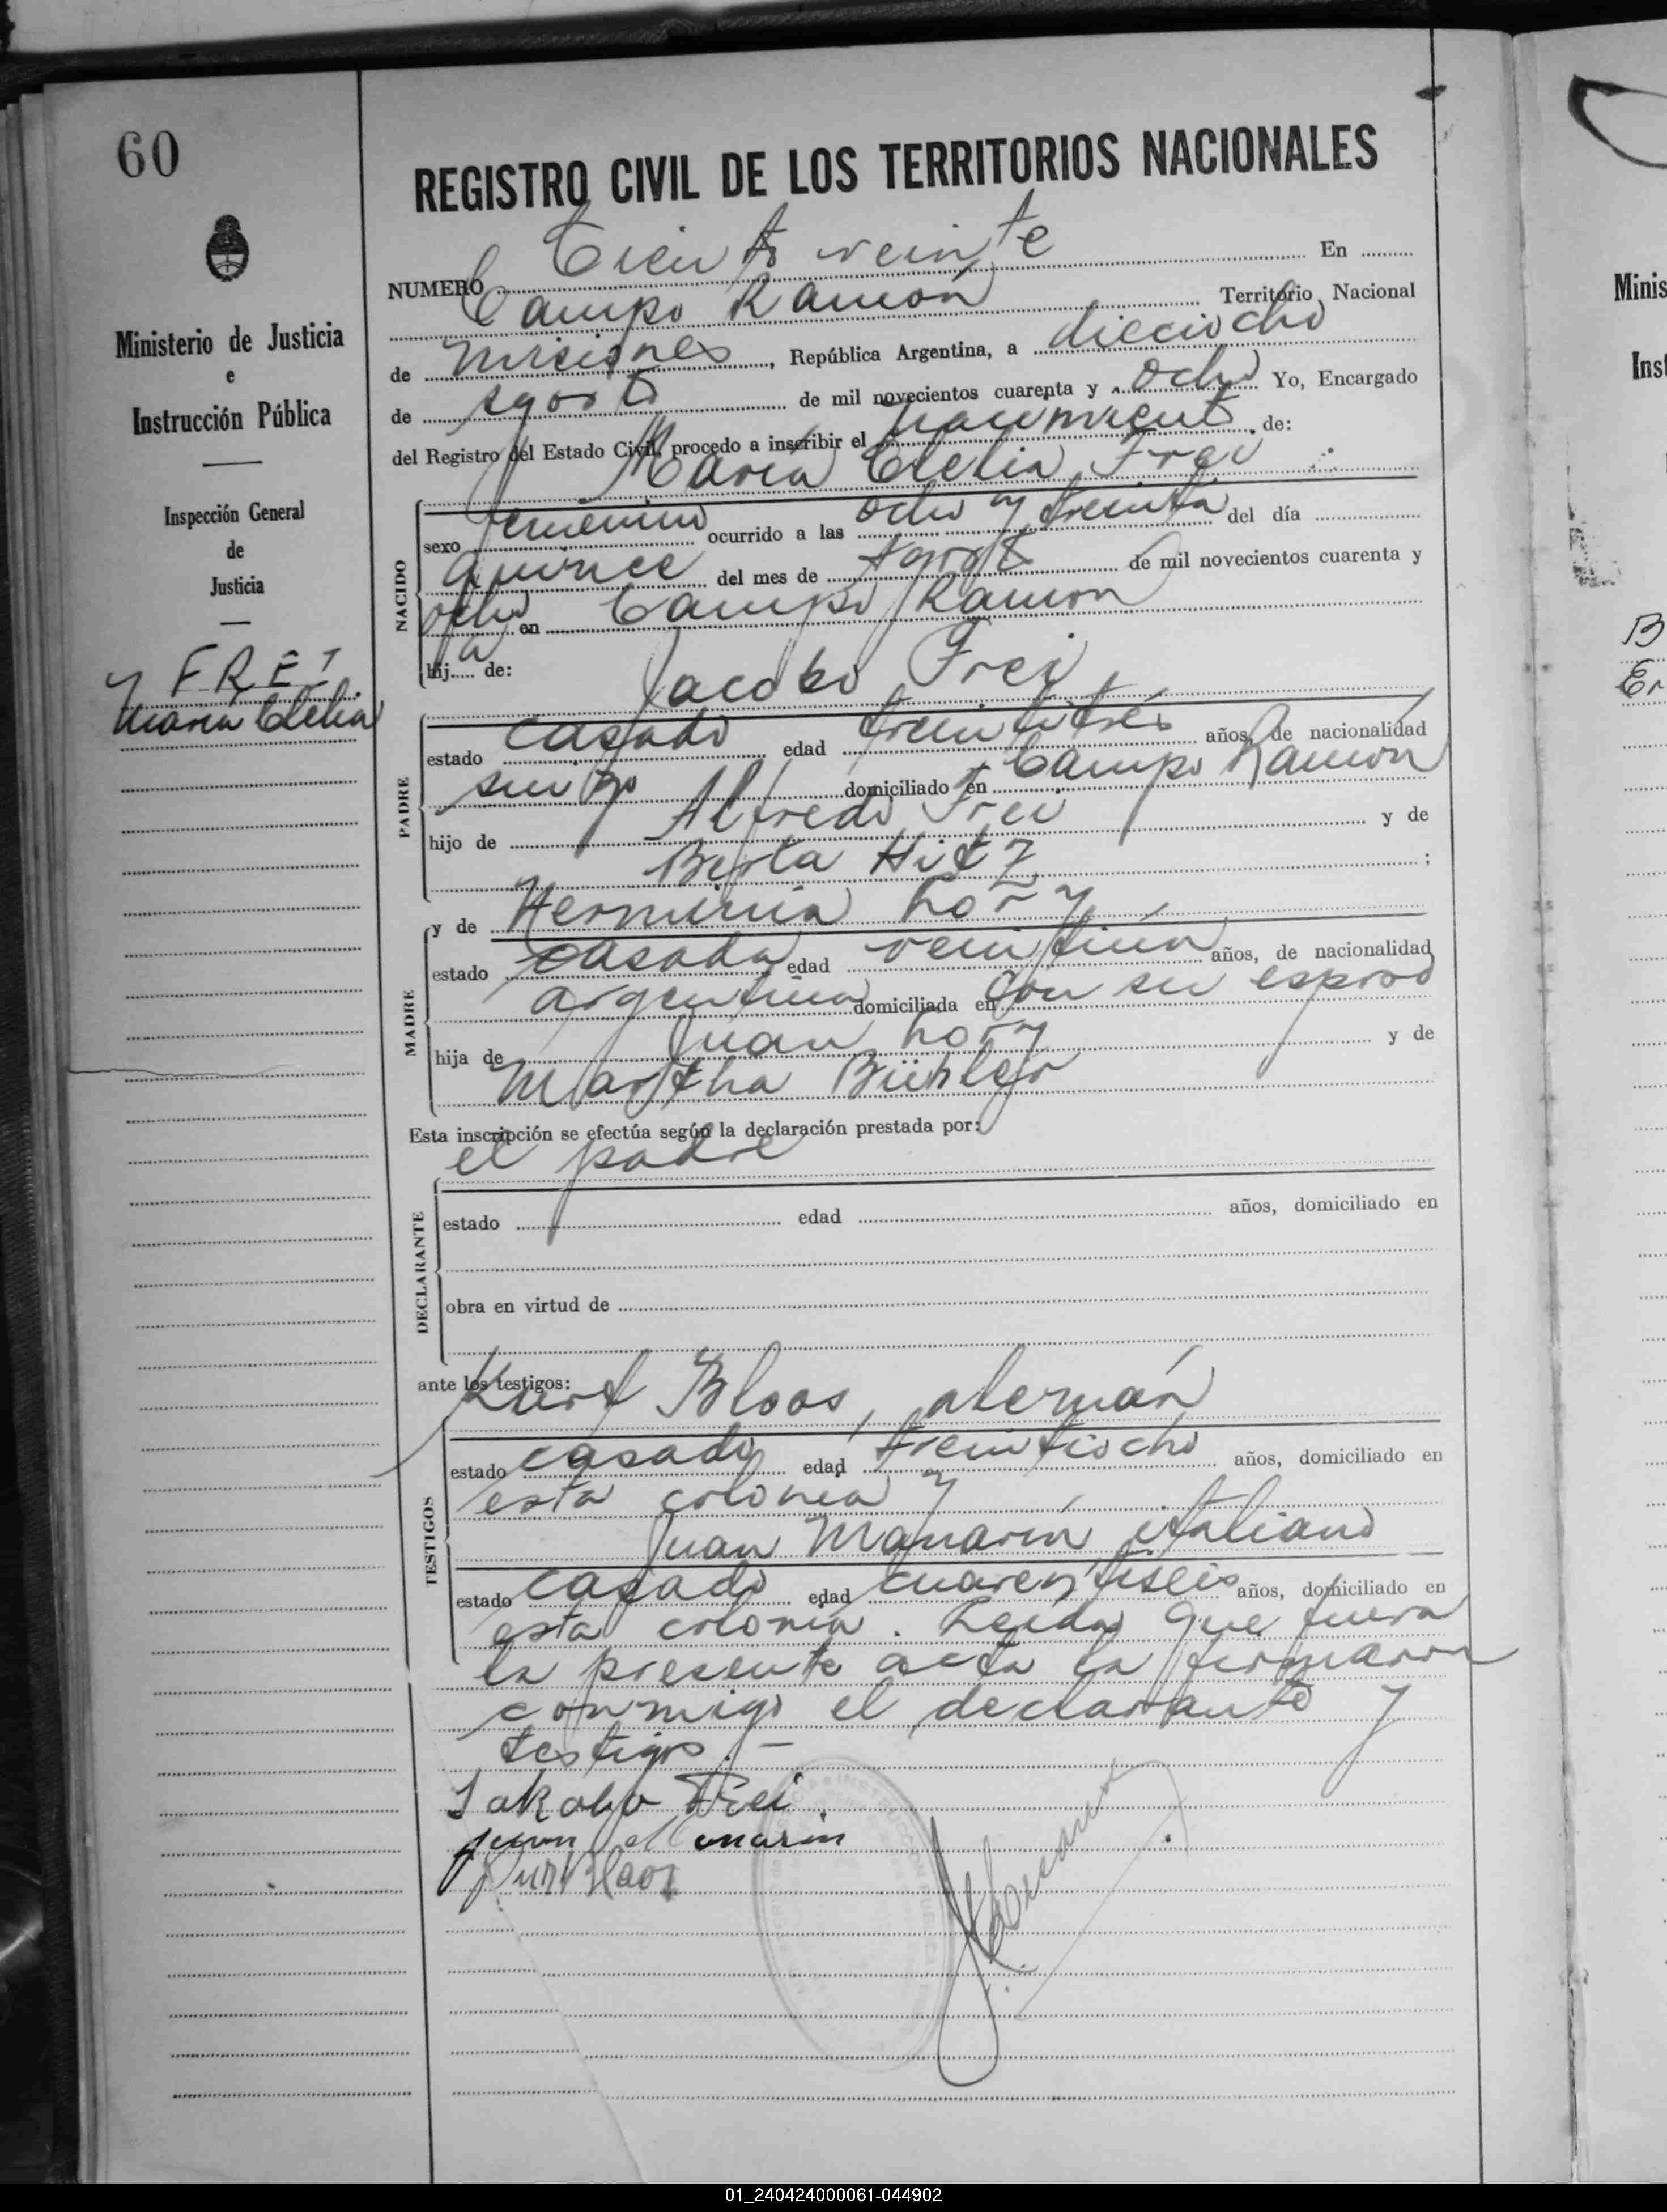 60
REGISTRO CIVIL DE LOS TERRITORIOS NACIONALES
NUMERO Ciento veinte En
Campo Ramón Territorio Nacional
de Misiones, República Argentina, a dieciocho
de agosto de mil novecientos cuarenta y ocho Yo, Encargado
del Registro del Estado Civil, procedo a inscribir el nacimiento de:
María Clelia Frei
NACIDO
sexo femenino ocurrido a las ocho y treinta del día
quince del mes de agosto de mil novecientos cuarenta y
ocho en Campo Ramon
hija de: Jacobo Frei
PADRE
estado casado edad treintitrés años, de nacionalidad
suizo domiciliado en Campo Ramón
hijo de Alfredo Frei y de
Berta Hitz ;
y de Herminia Lory
MADRE
estado casada edad veintiún años, de nacionalidad
argentina domiciliada en con su esposo
hija de Juan Lory y de
Martha Bühler
Esta inscripción se efectúa según la declaración prestada por:
el padre
DECLARANTE
estado edad años, domiciliado en
obra en virtud de
ante los testigos: Kurt Bloos, alemán
TESTIGOS
estado casado edad treintiocho años, domiciliado en
esta colonia y
Juan Manarin, italiano
estado casado edad cuarentiseis años, domiciliado en
esta colonia. Leida que fuera
la presente acta la firmaron
conmigo el declarante y
testigos.—
Jakobo Frei.
Juan Manarin
Kurt Bloos
Ministerio de Justicia
e
Instrucción Pública
Inspección General
de
Justicia
FREI
María Clelia
Minis
Inst
B
Er
01_240424000061-044902